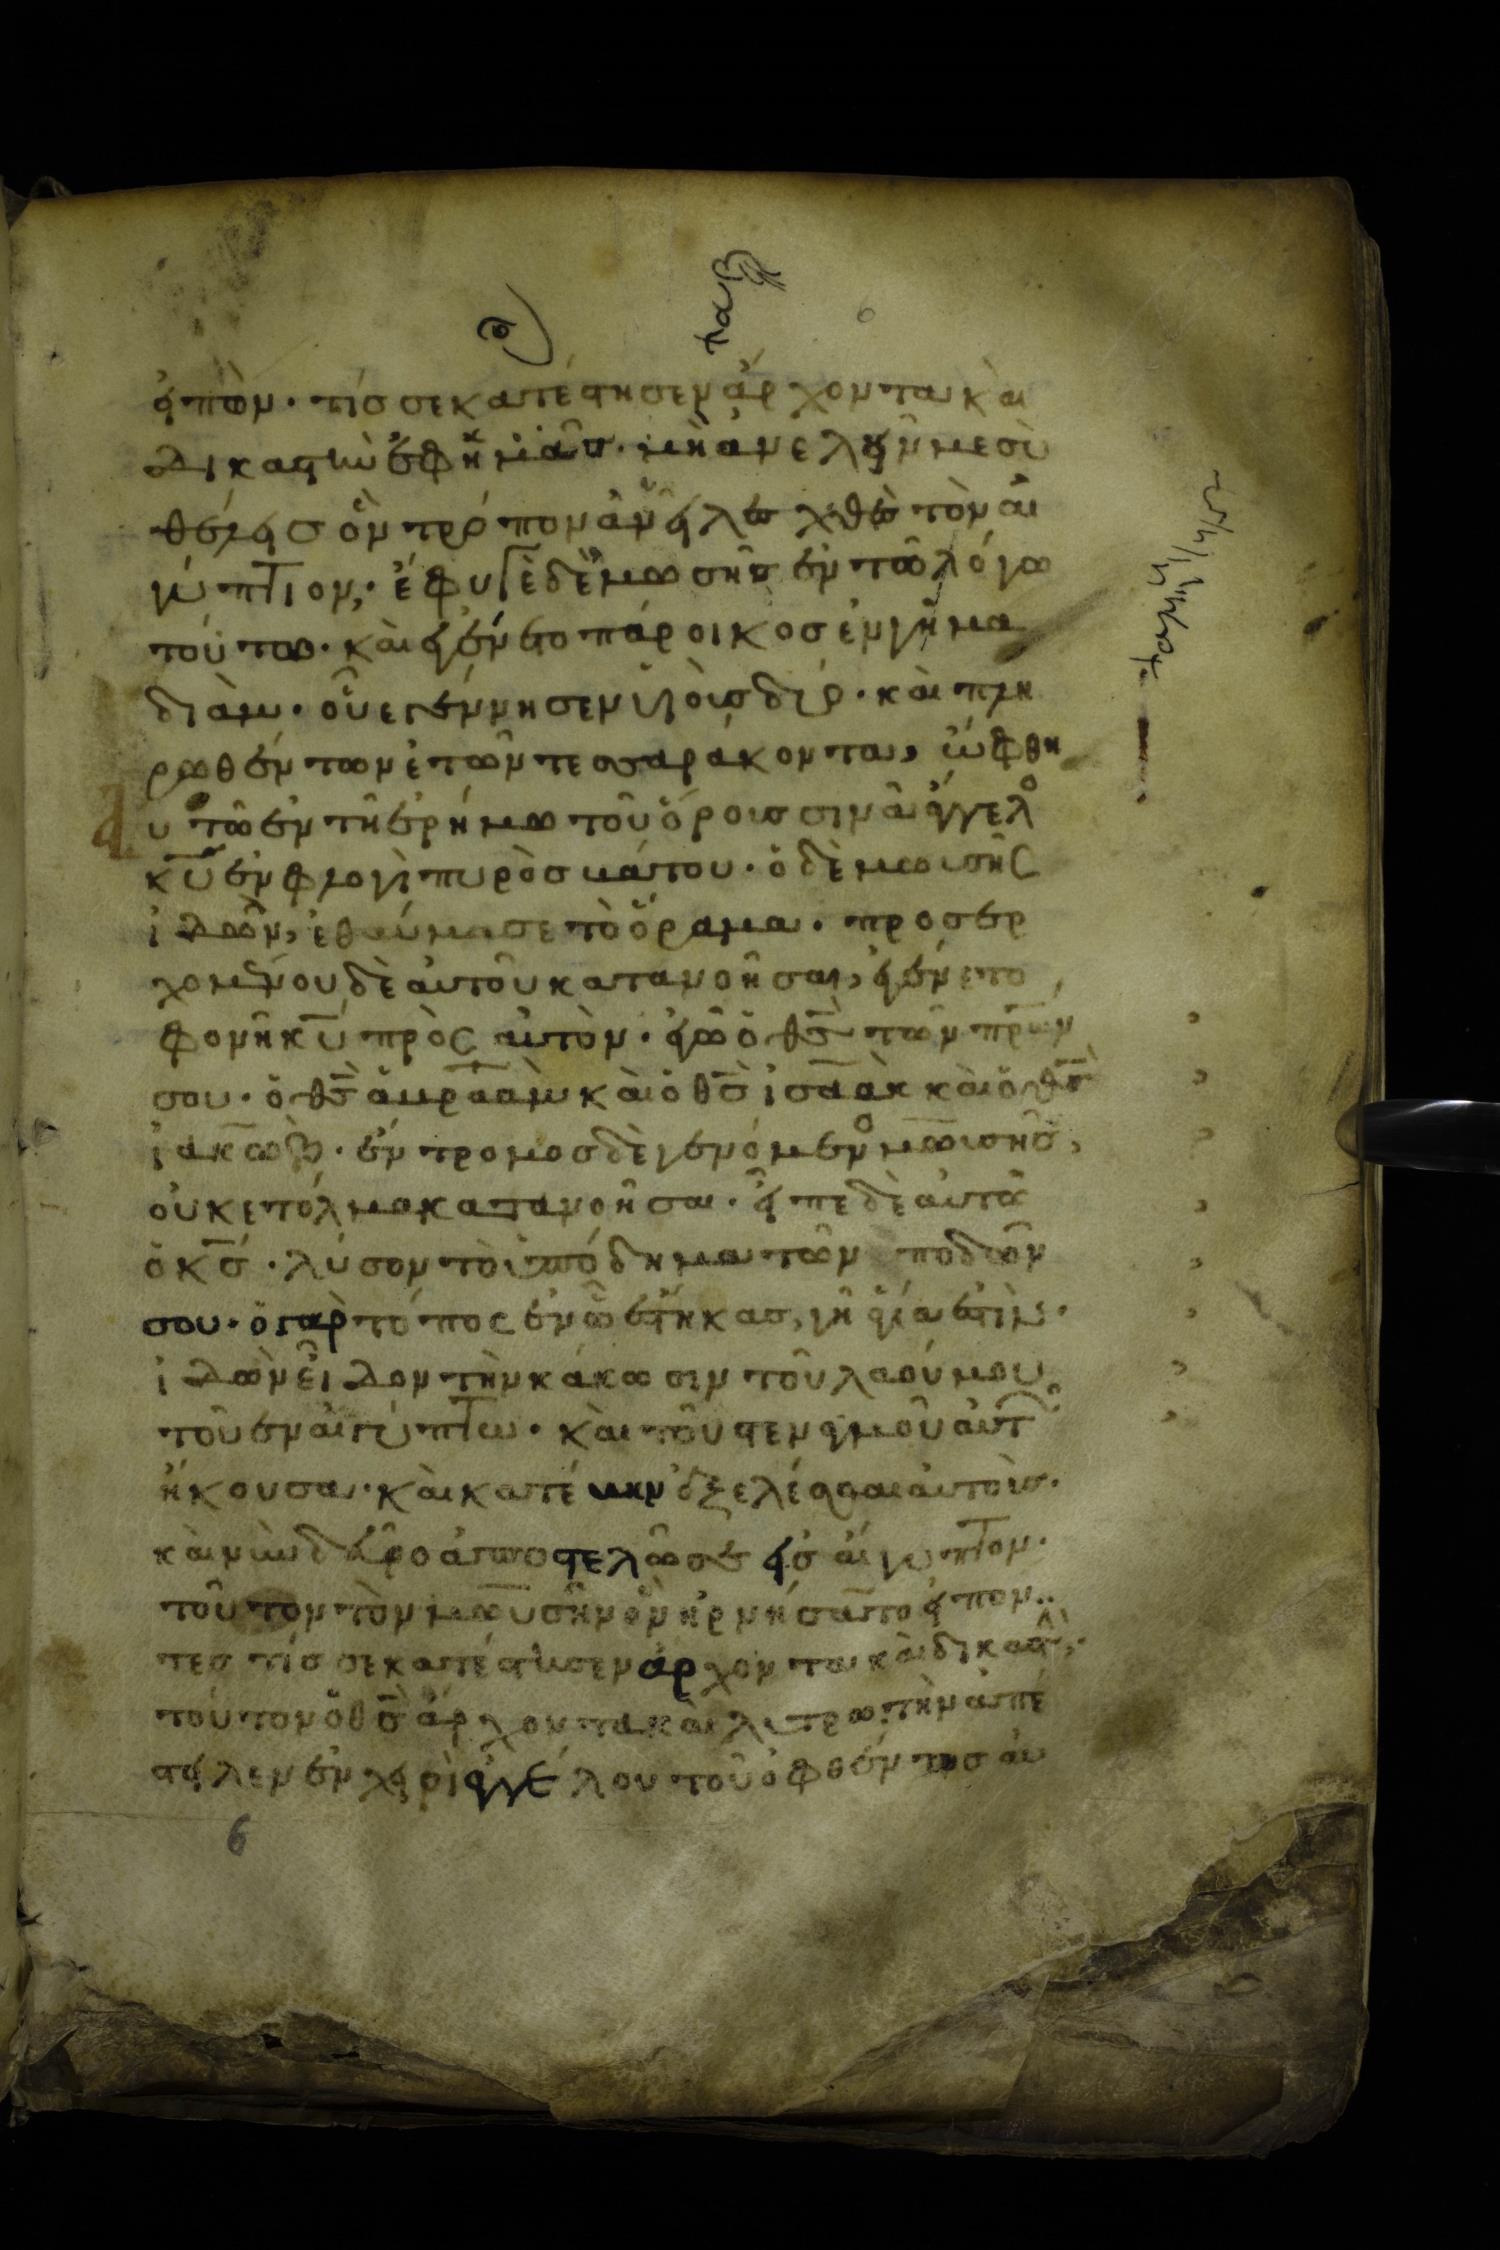 εἰπὼν· τίς σε κατέστησεν ἄρχοντα καὶ
δικαστὴν ἐφ ἡμᾶς· μὴ ἀνελεῖν με σὺ
θέλεις ὃν τρόπον ἀνεῖλες χθὲς τὸν αἰ
γύπτιον· ἔφυγε δὲ μωσῆς ἐν τῶ λόγω
τούτω· καὶ ἐγένετο πάροικος ἐν γῆ μα
διάμ· οὗ ἐγέννησεν υἱοὺς δύο· καὶ πλη
ρωθέντων ἐτῶν τεσσαράκοντα, ὤφθη
αυτῶ ἐν τῆ ἐρήμω τοῦ ὄρους σινᾶ ἄγγελο
κυ ἐν φλογὶ πυρὸς βάτου· ὁ δὲ μωυσῆς
ἰδὼν, ἐθαύμασε τὸ ὅραμα· προσερ
χομένου δὲ αὐτοῦ κατανοῆσαι, ἐγένετο
φονὴ κυ πρὸς αὐτὸν· ἐγὼ ὁ θς τῶν πρων
σου· ὁ θς ἁβρααμ καὶ ὁ θς ἰσαὰκ καὶ ὁ θς
ἰακωβ· ἔντρομος δὲ γενόμενο μωυσῆς,
οὐκ ετόλμα κατανοῆσαι· εἶπε δὲ αὐτῶ
ὁ κς· λύσον τὸ ὑπόδημα τῶν ποδῶν
σου· ὁ γὰρ τόπος ἐν ὧ ἕστηκας, γῆ ἁγία ἐστὶν·
ἰδὼν εἶδον τὴν κάκωσιν τοῦ λαοῦ μου
τοῦ ἐν αἰγύπτω· καὶ τοῦ στεναγμοῦ αὐτ
ἤκουσα· καὶ κατέβην ἐξελέσθαι αὐτοὺς·
καὶ νῦν δεῦρο ἀποστελῶ σε εἰς αἴγυπτον·
τοῦτον τὸν μωυσῆν ὃν ἠρνήσαντο εἰπόν
τες τίς σε κατέστησεν ἄρχοντα καὶ δικαστὴν
τοῦτον ὁ θς ἄρχοντα καὶ λυτρωτὴν ἀπέ
στειλεν ἐν χειρὶ ἀγγέλου τοῦ ὀφθέντος αὐ
6